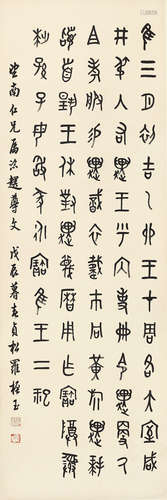 隹三月初吉乙卯王才周各大室咸
井弔入右趩王乎内史册令趩更厥
且考服易趩戠衣載市冋黄旂趩拜
稽首揚王休對趩蔑曆用乍寶尊彝
世孫子毋敢墜永寶隹王二祀
南仁兄屬臨趩尊文 戊辰暮春貞松羅振玉